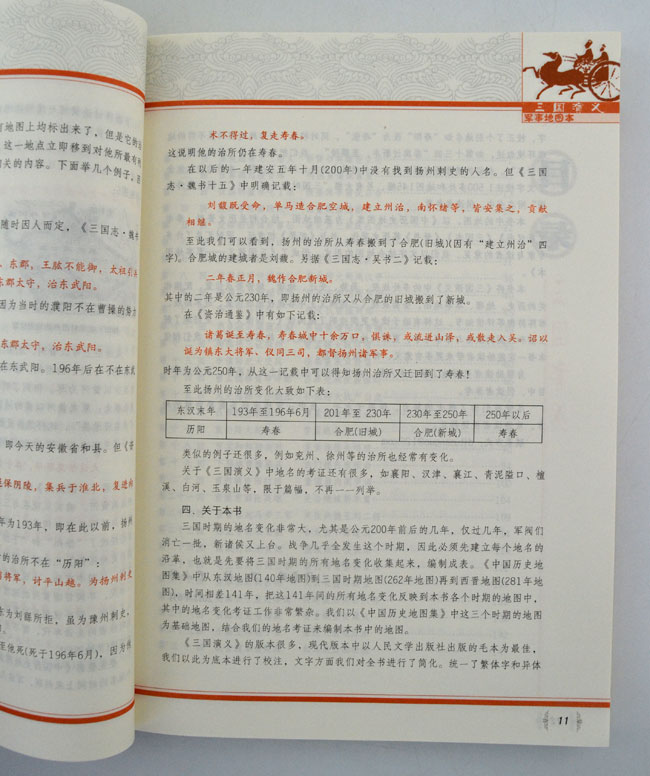 有地图上均标出来了，但是它的治
这一地点立即移到对他所最有利
关的内容。下面举几个例子。
随时因人而定，《三国志·魏书
、东郡，王肱不能御，太祖引兵
东郡太守，治东武阳。
因为当时的濮阳不在曹操的势力
东郡太守，治东武阳。
在东武阳。196年后在不在东武
，即今天的安徽省和县。但《
退保阴陵，集兵于淮北，复进
年为193年，即在此以前，扬州
的治所不在“历阳”：
将军，讨平山越。为扬州刺史
东为刘繇所拒，虽为豫州刺史，
至他死(死于196年6月)，因为他
三国演义
军事地图本
术不得过，复走寿春。
这说明他的治所仍在寿春。
在以后的一年建安五年十月(200年)中没有找到扬州刺史的人名。但《三国
志·魏书十五》中明确记载：
刘馥既受命，单马造合肥空城，建立州治，南怀绪等，皆安集之，贡献
相继。
至此我们可以看到，扬州的治所从寿春搬到了合肥(旧城)(因有“建立州治”四
字)。合肥城的建城者是刘馥。另据《三国志·吴书二》记载：
二年春正月，魏作合肥新城。
其中的二年是公元230年，即扬州的治所又从合肥的旧城搬到了新城。
在《资治通鉴》中有如下记载：
诸葛诞至寿春，寿春城中十余万口，惧诛，或流迸山泽，或散走入吴。诏以
诞为镇东大将军、仪同三司，都督扬州诸军事。
时年为公元250年，从这一记载中可以得知扬州治所又迁回到了寿春！
至此扬州的治所变化大致如下表：
东汉末年 193年至196年6月 201年至 230年 230年至250年 250年以后
历阳 寿春 合肥(旧城) 合肥(新城) 寿春
类似的例子还很多，例如兖州、徐州等的治所也经常有变化。
关于《三国演义》中地名的考证还有很多，如襄阳、汉津、襄江、青泥隘口、檀
溪、白河、玉泉山等，限于篇幅，不再一一列举。
四、关于本书
三国时期的地名变化非常大，尤其是公元200年前后的几年，仅过几年，军阀们
消亡一批，新诸侯又上台。战争几乎全发生这个时期，因此必须先建立每个地名的
沿革，也就是先要将三国时期的所有地名变化收集起来，编制成表。《中国历史地
图集》中从东汉地图(140年地图)到三国时期地图(262年地图)再到西晋地图(281年地
图)，时间相差141年，把这141年间的所有地名变化反映到本书各个时期的地图中，
其中的地名变化考证工作非常繁杂。我们以《中国历史地图集》中这三个时期的地图
为基础地图，结合我们的地名考证来编制本书中的地图。
《三国演义》的版本很多，现代版本中以人民文学出版社出版的毛本为最佳，
我们以此为底本进行了校注，文字方面我们对全书进行了简化。统一了繁体字和异体
11